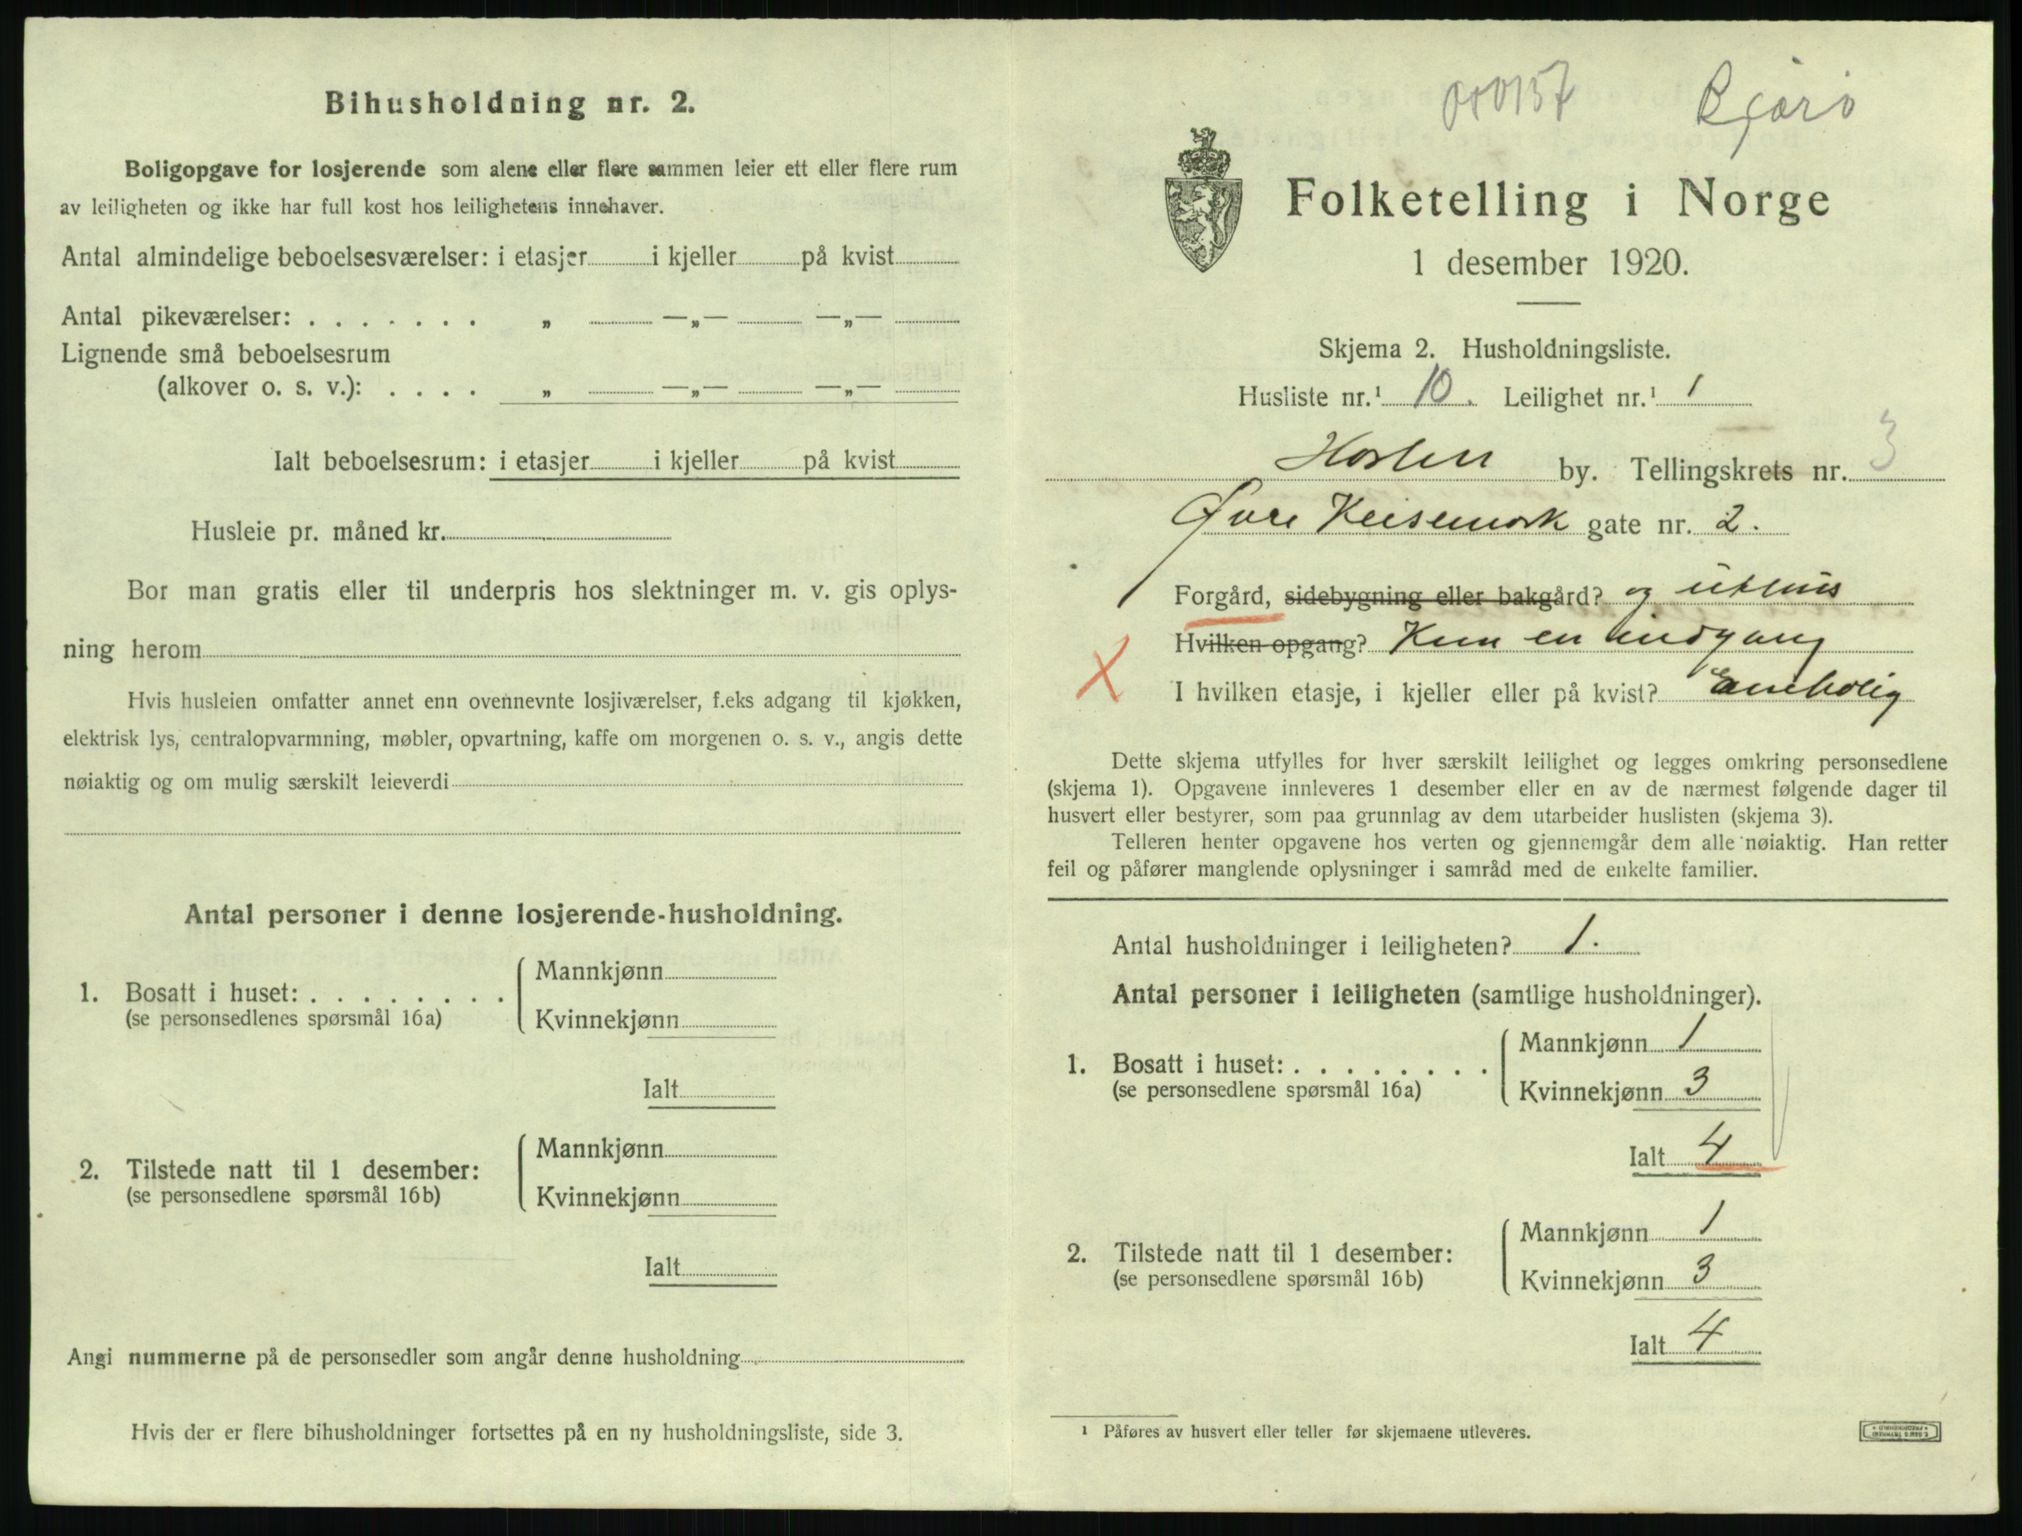 Bihusholdning nr. 2.
Boligopgave for losjerende som alene eller flere sammen leier ett eller flere rum
av leiligheten og ikke har full kost hos leilighetens innehaver.
Antal almindelige beboelsesværelser: i etasjer i kjeller på kvist
Antal pikeværelser: . . . . . . . „ —„— —„—
Lignende små beboelsesrum
(alkover o. s. v.): . . . . „ —„— —„—
Ialt beboelsesrum: i etasjer i kjeller på kvist
Husleie pr. måned kr.
Bor man gratis eller til underpris hos slektninger m. v. gis oplys-
ning herom
Hvis husleien omfatter annet enn ovennevnte losjiværelser, f.eks adgang til kjøkken,
elektrisk lys, centralopvarmning, møbler, opvartning, kaffe om morgenen o. s. v., angis dette
nøiaktig og om mulig særskilt leieverdi
Antal personer i denne losjerende-husholdning.
1. Bosatt i huset: . . . . . . . . Mannkjønn
(se personsedlenes spørsmål 16a) Kvinnekjønn
Ialt
2. Tilstede natt til 1 desember: Mannkjønn
(se personsedlene spørsmål 16b) Kvinnekjønn
Ialt
Angi nummerne på de personsedler som angår denne husholdning
Hvis der er flere bihusholdninger fortsettes på en ny husholdningsliste, side 3.
000157 Bjørö
Folketelling i Norge
1 desember 1920.
Skjema 2. Husholdningsliste.
Husliste nr.¹ 10. Leilighet nr.¹ 1
Horten by. Tellingskrets nr. 3
Øvre Keisemark gate nr. 2.
Forgård, sidebygning eller bakgård? og uthus
Hvilken opgang? Kun en indgang
I hvilken etasje, i kjeller eller på kvist? Enebolig
Dette skjema utfylles for hver særskilt leilighet og legges omkring personsedlene
(skjema 1). Opgavene innleveres 1 desember eller en av de nærmest følgende dager til
husvert eller bestyrer, som paa grunnlag av dem utarbeider huslisten (skjema 3).
Telleren henter opgavene hos verten og gjennemgår dem alle nøiaktig. Han retter
feil og påfører manglende oplysninger i samråd med de enkelte familier.
Antal husholdninger i leiligheten? 1.
Antal personer i leiligheten (samtlige husholdninger).
1. Bosatt i huset: . . . . . . . . Mannkjønn 1
(se personsedlene spørsmål 16a) Kvinnekjønn 3
Ialt 4
2. Tilstede natt til 1 desember: Mannkjønn 1
(se personsedlene spørsmål 16b) Kvinnekjønn 3
Ialt 4
¹ Påføres av husvert eller teller før skjemaene utleveres.